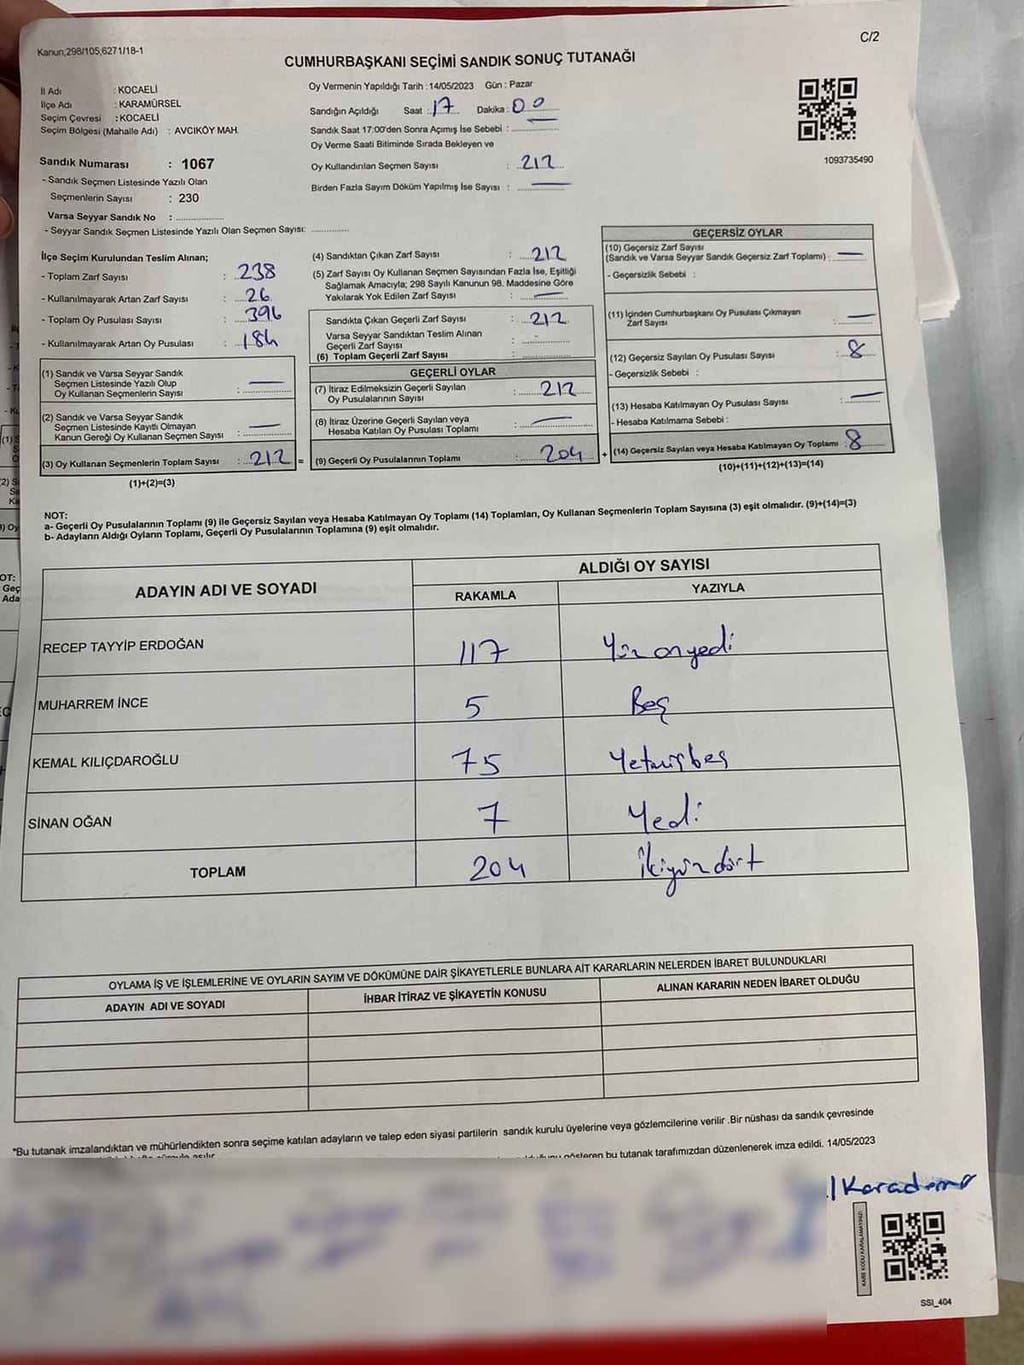 Kanun;298/105,6271/18-1
C/2
CUMHURBAŞKANI SEÇİMİ SANDIK SONUÇ TUTANAĞI
İl Adı : KOCAELİ
İlçe Adı : KARAMÜRSEL
Seçim Çevresi : KOCAELİ
Seçim Bölgesi (Mahalle Adı) : AVCIKÖY MAH.
Sandık Numarası : 1067
- Sandık Seçmen Listesinde Yazılı Olan
Seçmenlerin Sayısı : 230
Varsa Seyyar Sandık No :
- Seyyar Sandık Seçmen Listesinde Yazılı Olan Seçmen Sayısı:
Oy Vermenin Yapıldığı Tarih : 14/05/2023 Gün : Pazar
Sandığın Açıldığı Saat : 17 Dakika : 00
Sandık Saat 17:00'den Sonra Açımış İse Sebebi :
Oy Verme Saati Bitiminde Sırada Bekleyen ve
Oy Kullandırılan Seçmen Sayısı : 212
Birden Fazla Sayım Döküm Yapılmış İse Sayısı : —
1093735490
İlçe Seçim Kurulundan Teslim Alınan;
- Toplam Zarf Sayısı : 238
- Kullanılmayarak Artan Zarf Sayısı : 26
- Toplam Oy Pusulası Sayısı : 396
- Kullanılmayarak Artan Oy Pusulası : 184
(1) Sandık ve Varsa Seyyar Sandık
Seçmen Listesinde Yazılı Olup
Oy Kullanan Seçmenlerin Sayısı : —
(2) Sandık ve Varsa Seyyar Sandık
Seçmen Listesinde Kayıtlı Olmayan
Kanun Gereği Oy Kullanan Seçmen Sayısı : —
(3) Oy Kullanan Seçmenlerin Toplam Sayısı : 212 =
(1)+(2)=(3)
(4) Sandıktan Çıkan Zarf Sayısı : 212
(5) Zarf Sayısı Oy Kullanan Seçmen Sayısından Fazla İse, Eşitliği
Sağlamak Amacıyla; 298 Sayılı Kanunun 98. Maddesine Göre
Yakılarak Yok Edilen Zarf Sayısı : —
Sandıkta Çıkan Geçerli Zarf Sayısı : 212
Varsa Seyyar Sandıktan Teslim Alınan
Geçerli Zarf Sayısı :
(6) Toplam Geçerli Zarf Sayısı :
GEÇERLİ OYLAR
(7) İtiraz Edilmeksizin Geçerli Sayılan
Oy Pusulasının Sayısı : 212
(8) İtiraz Üzerine Geçerli Sayılan veya
Hesaba Katılan Oy Pusulası Toplamı : —
(9) Geçerli Oy Pusulalarının Toplamı : 204 +
GEÇERSİZ OYLAR
(10) Geçersiz Zarf Sayısı
(Sandık ve Varsa Seyyar Sandık Geçersiz Zarf Toplamı) : —
- Geçersizlik Sebebi :
(11) İçinden Cumhurbaşkanı Oy Pusulası Çıkmayan
Zarf Sayısı : —
(12) Geçersiz Sayılan Oy Pusulası Sayısı : 8
- Geçersizlik Sebebi :
(13) Hesaba Katılmayan Oy Pusulası Sayısı : —
- Hesaba Katılmama Sebebi :
(14) Geçersiz Sayılan veya Hesaba Katılmayan Oy Toplamı : 8
(10)+(11)+(12)+(13)=(14)
NOT:
a- Geçerli Oy Pusulalarının Toplamı (9) ile Geçersiz Sayılan veya Hesaba Katılmayan Oy Toplamı (14) Toplamları, Oy Kullanan Seçmenlerin Toplam Sayısına (3) eşit olmalıdır. (9)+(14)=(3)
b- Adayların Aldığı Oyların Toplamı, Geçerli Oy Pusulalarının Toplamına (9) eşit olmalıdır.
ADAYIN ADI VE SOYADI
ALDIĞI OY SAYISI
RAKAMLA YAZIYLA
RECEP TAYYİP ERDOĞAN 117 Yüz onyedi
MUHARREM İNCE 5 Beş
KEMAL KILIÇDAROĞLU 75 Yetmişbeş
SİNAN OĞAN 7 Yedi
TOPLAM 204 İkiyüzdört
OYLAMA İŞ VE İŞLEMLERİNE VE OYLARIN SAYIM VE DÖKÜMÜNE DAİR ŞİKAYETLERLE BUNLARA AİT KARARLARIN NELERDEN İBARET BULUNDUKLARI
ADAYIN ADI VE SOYADI İHBAR İTİRAZ VE ŞİKAYETİN KONUSU ALINAN KARARIN NEDEN İBARET OLDUĞU
*Bu tutanak imzalandıktan ve mühürlendikten sonra seçime katılan adayların ve talep eden siyasi partilerin sandık kurulu üyelerine veya gözlemcilerine verilir .Bir nüshası da sandık çevresinde
gösteren bu tutanak tarafımızdan düzenlenerek imza edildi. 14/05/2023
KARE KODU KARALAMAYINIZ!
SSI_404